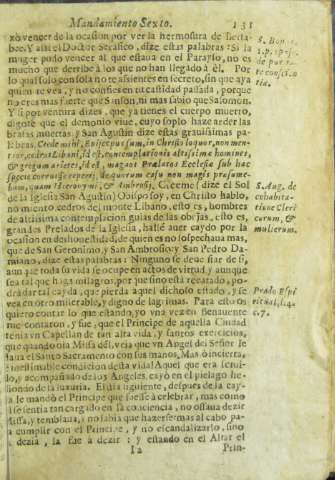 Mandamiento Sexto. 131
xò vencer de la ocasion por ver la hermosura de Betsa-
bee. Y assi el Doctor Serafico, dize estas palabras: Si la
muger pudo vencer al que estaua en el Parayso, no es
mucho que derribe à los que no han llegado à èl. Por
lo qual solo con solo no te assientes en secreto, sin que aya
quien te vea, y no confies en tu castidad passada, porque
no eres mas fuerte que Sanson, ni mas sabio que Salomon.
Y si por ventura dizes, que ya tienes el cuerpo muerto,
digote que el demonio viue, cuyo soplo haze arder las
brasas muertas. y San Agustin dize estas grauissimas pa-
labras, Crede mihi, Episcopus sum, in Christo loquor, non men-
tior, cedros Libani, id est, contemplationis altissimæ homines,
& gregum arietes, id est, magnos Prælatos Ecclesiæ sub hac
specie corruisse reperi; de quorum casu non magis præsume-
bam, quam Hieronymi, & Ambrosij. Creeme (dize el Sol
de la Iglesia San Agustin) Obispo soy, en Christo hablo,
no miento cedros del monte Libano, esto es, hombres
de altissima contemplacion guias de las obejas, esto es,
grandes Prelados de la Iglesia, hallè auer caydo por la
ocasion en deshonestidad, de quien es no sospechaua mas,
que de San Geronimo, y San Ambrosio; y San Pedro Da-
miano, dize estas palabras: Ninguno se deue fiar de si,
aunque toda su vida se ocupe en actos de virtud, y aunque
sea tal que haga milagros, por que sino està recatado, po-
drà dar tal cayda, que pierda aquel dichoso estado, y se
vea en otro miserable, y digno de lagrimas. Para esto os
quiero contar lo que estando, yo vna vez en Benauente
me contaron, y fue, que el Principe de aquella Ciudad
tenia vn Capellan de tan alta vida, y santos exercicios,
que quando oìa Missa dèl, veìa que vn Angel del Señor le
daua el Santo Sacramento con sus manos, Mas ò incierta,
è inestimable condicion desta vida! Aquel que era serui-
do, y acompañado de los Angeles cayò en el pielago he-
diondo de la luxuria. El dia siguiente, despues de la cay-
da le mandò el Principe que fuesse à celebrar, mas como
el se sentia tan cargado en su conciencia, no ossaua dezir
Missa, y temblaua, y no sabia que hazerse: mas al cabo pa-
ra cumplir con el Principe, y no escandalizarlo, sino
la dezia, la fue à dezir: y estando en el Altar el
I 2 Prin-
S. Bonau.
1. p.
de puri-
te conscien-
tia.
S. Aug. de
cohabita-
tione Cleri
corum, &
mulierum.
Prado Espi
ritual, l. 4.
c. 7.